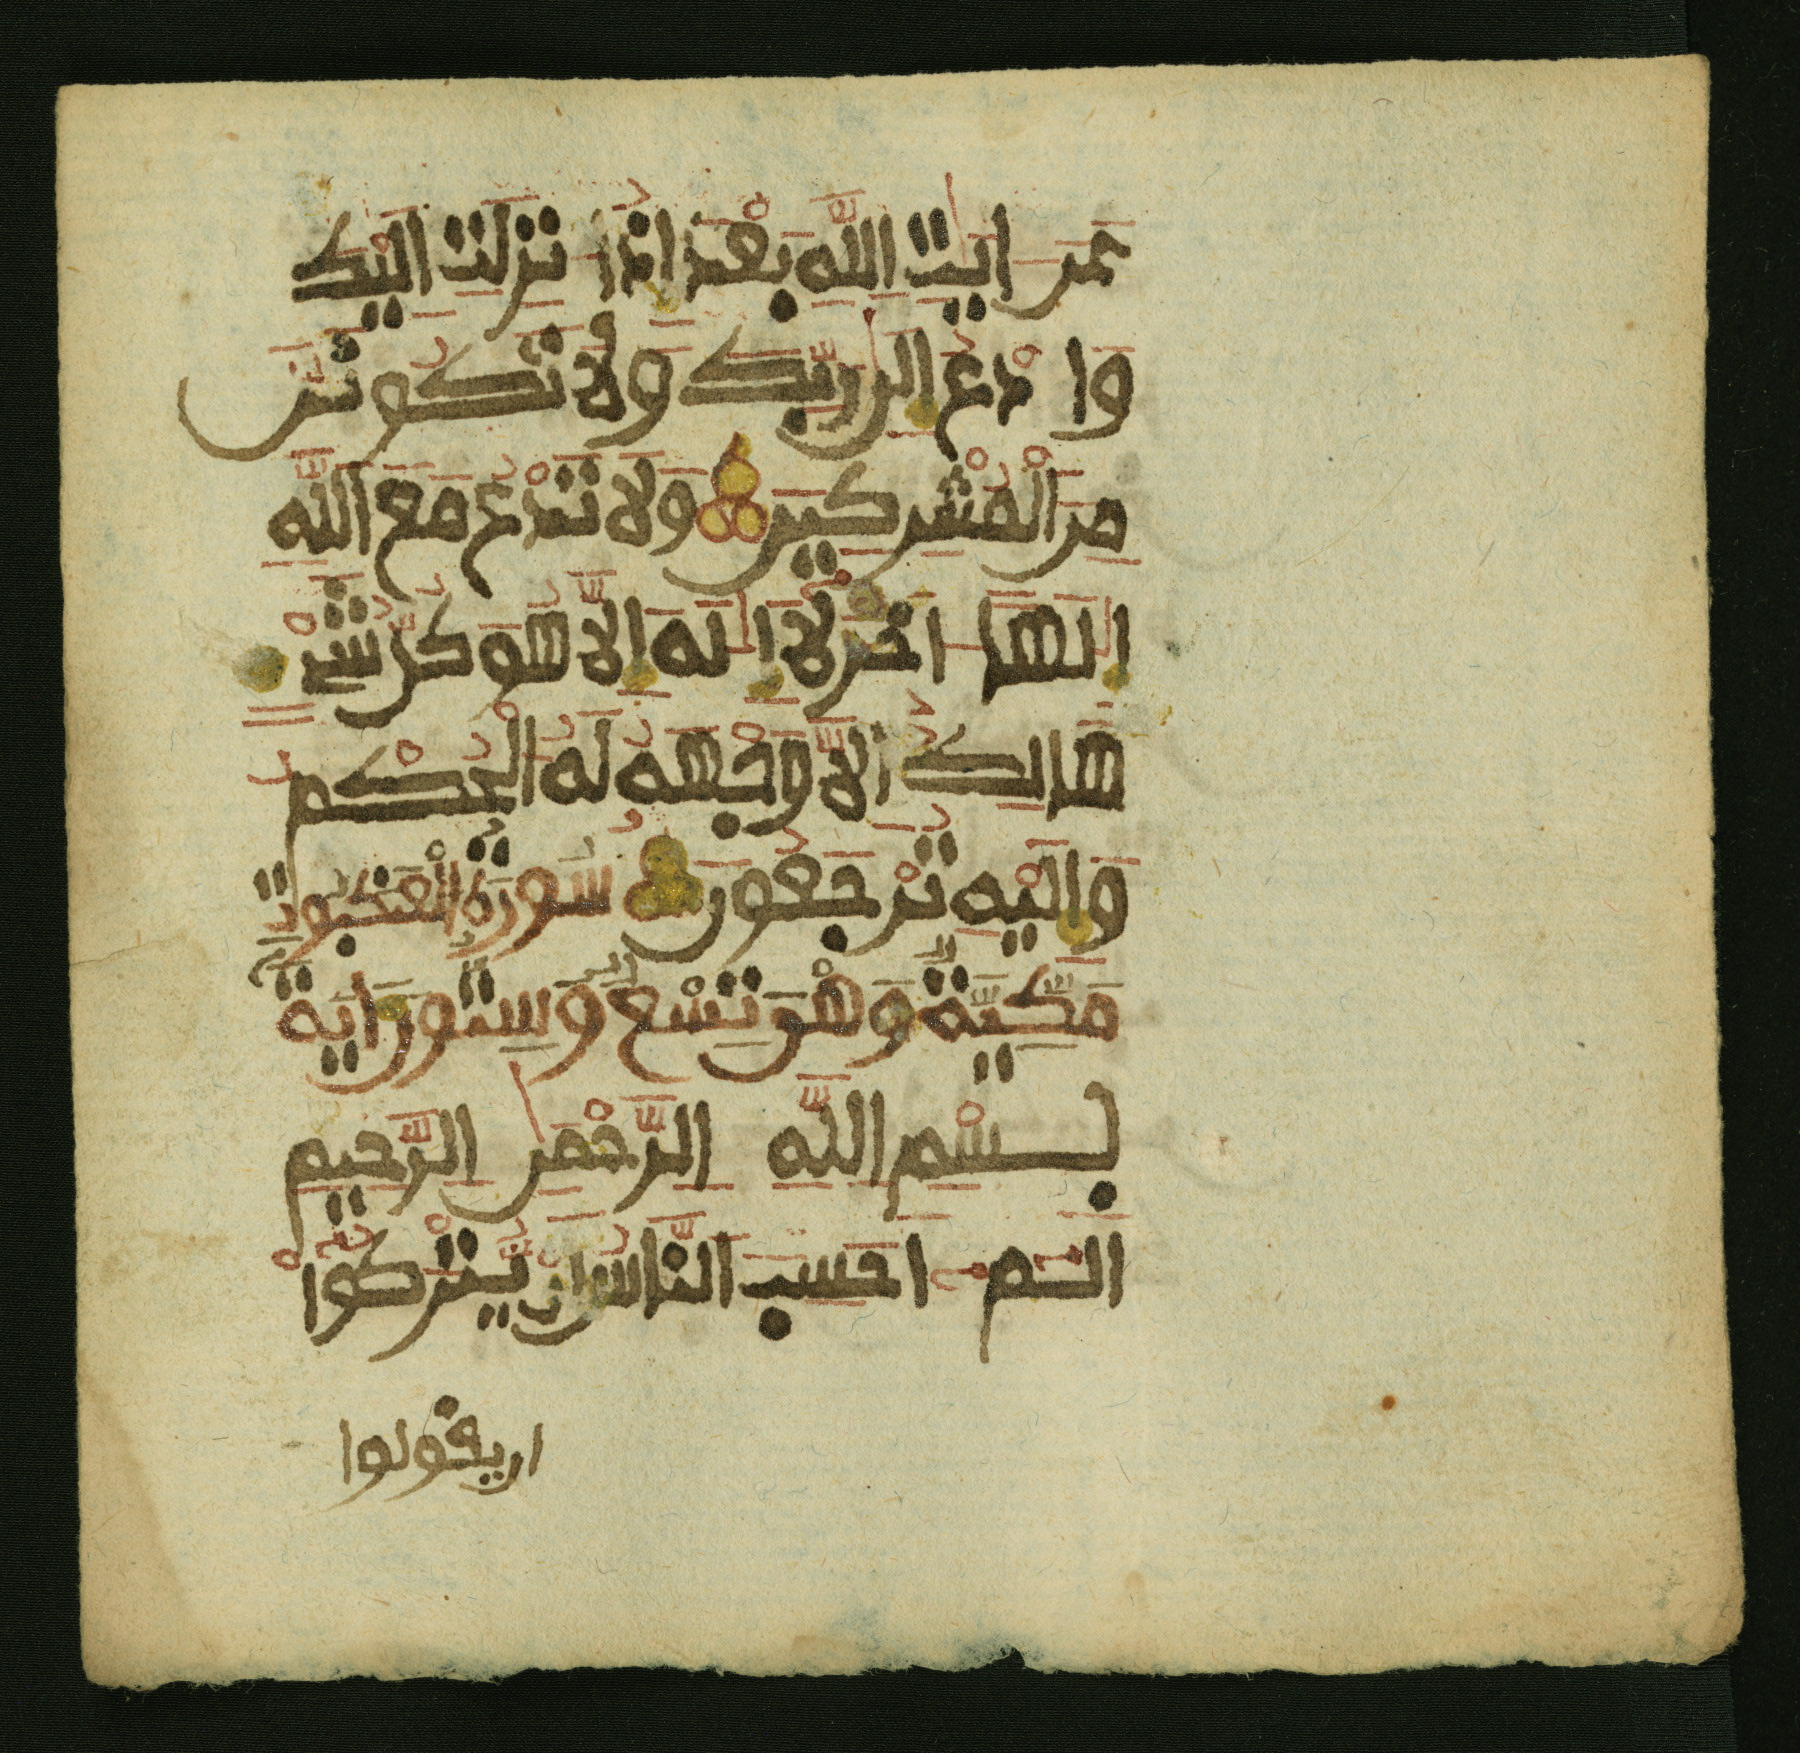 عن ايت الله بعد اذ انزلت اليك
وادع الى ربك ولا تكونن
من المشركين ولا تدع مع الله
الها اخر لا اله الا هو كل شئ
هالك الا وجهه له الحكم
واليه ترجعون سورة العنكبوت
مكية وهو تسع وستون اية
بسم الله الرحمن الرحيم
الم احسب الناس ان يتركوا
ان يقولوا